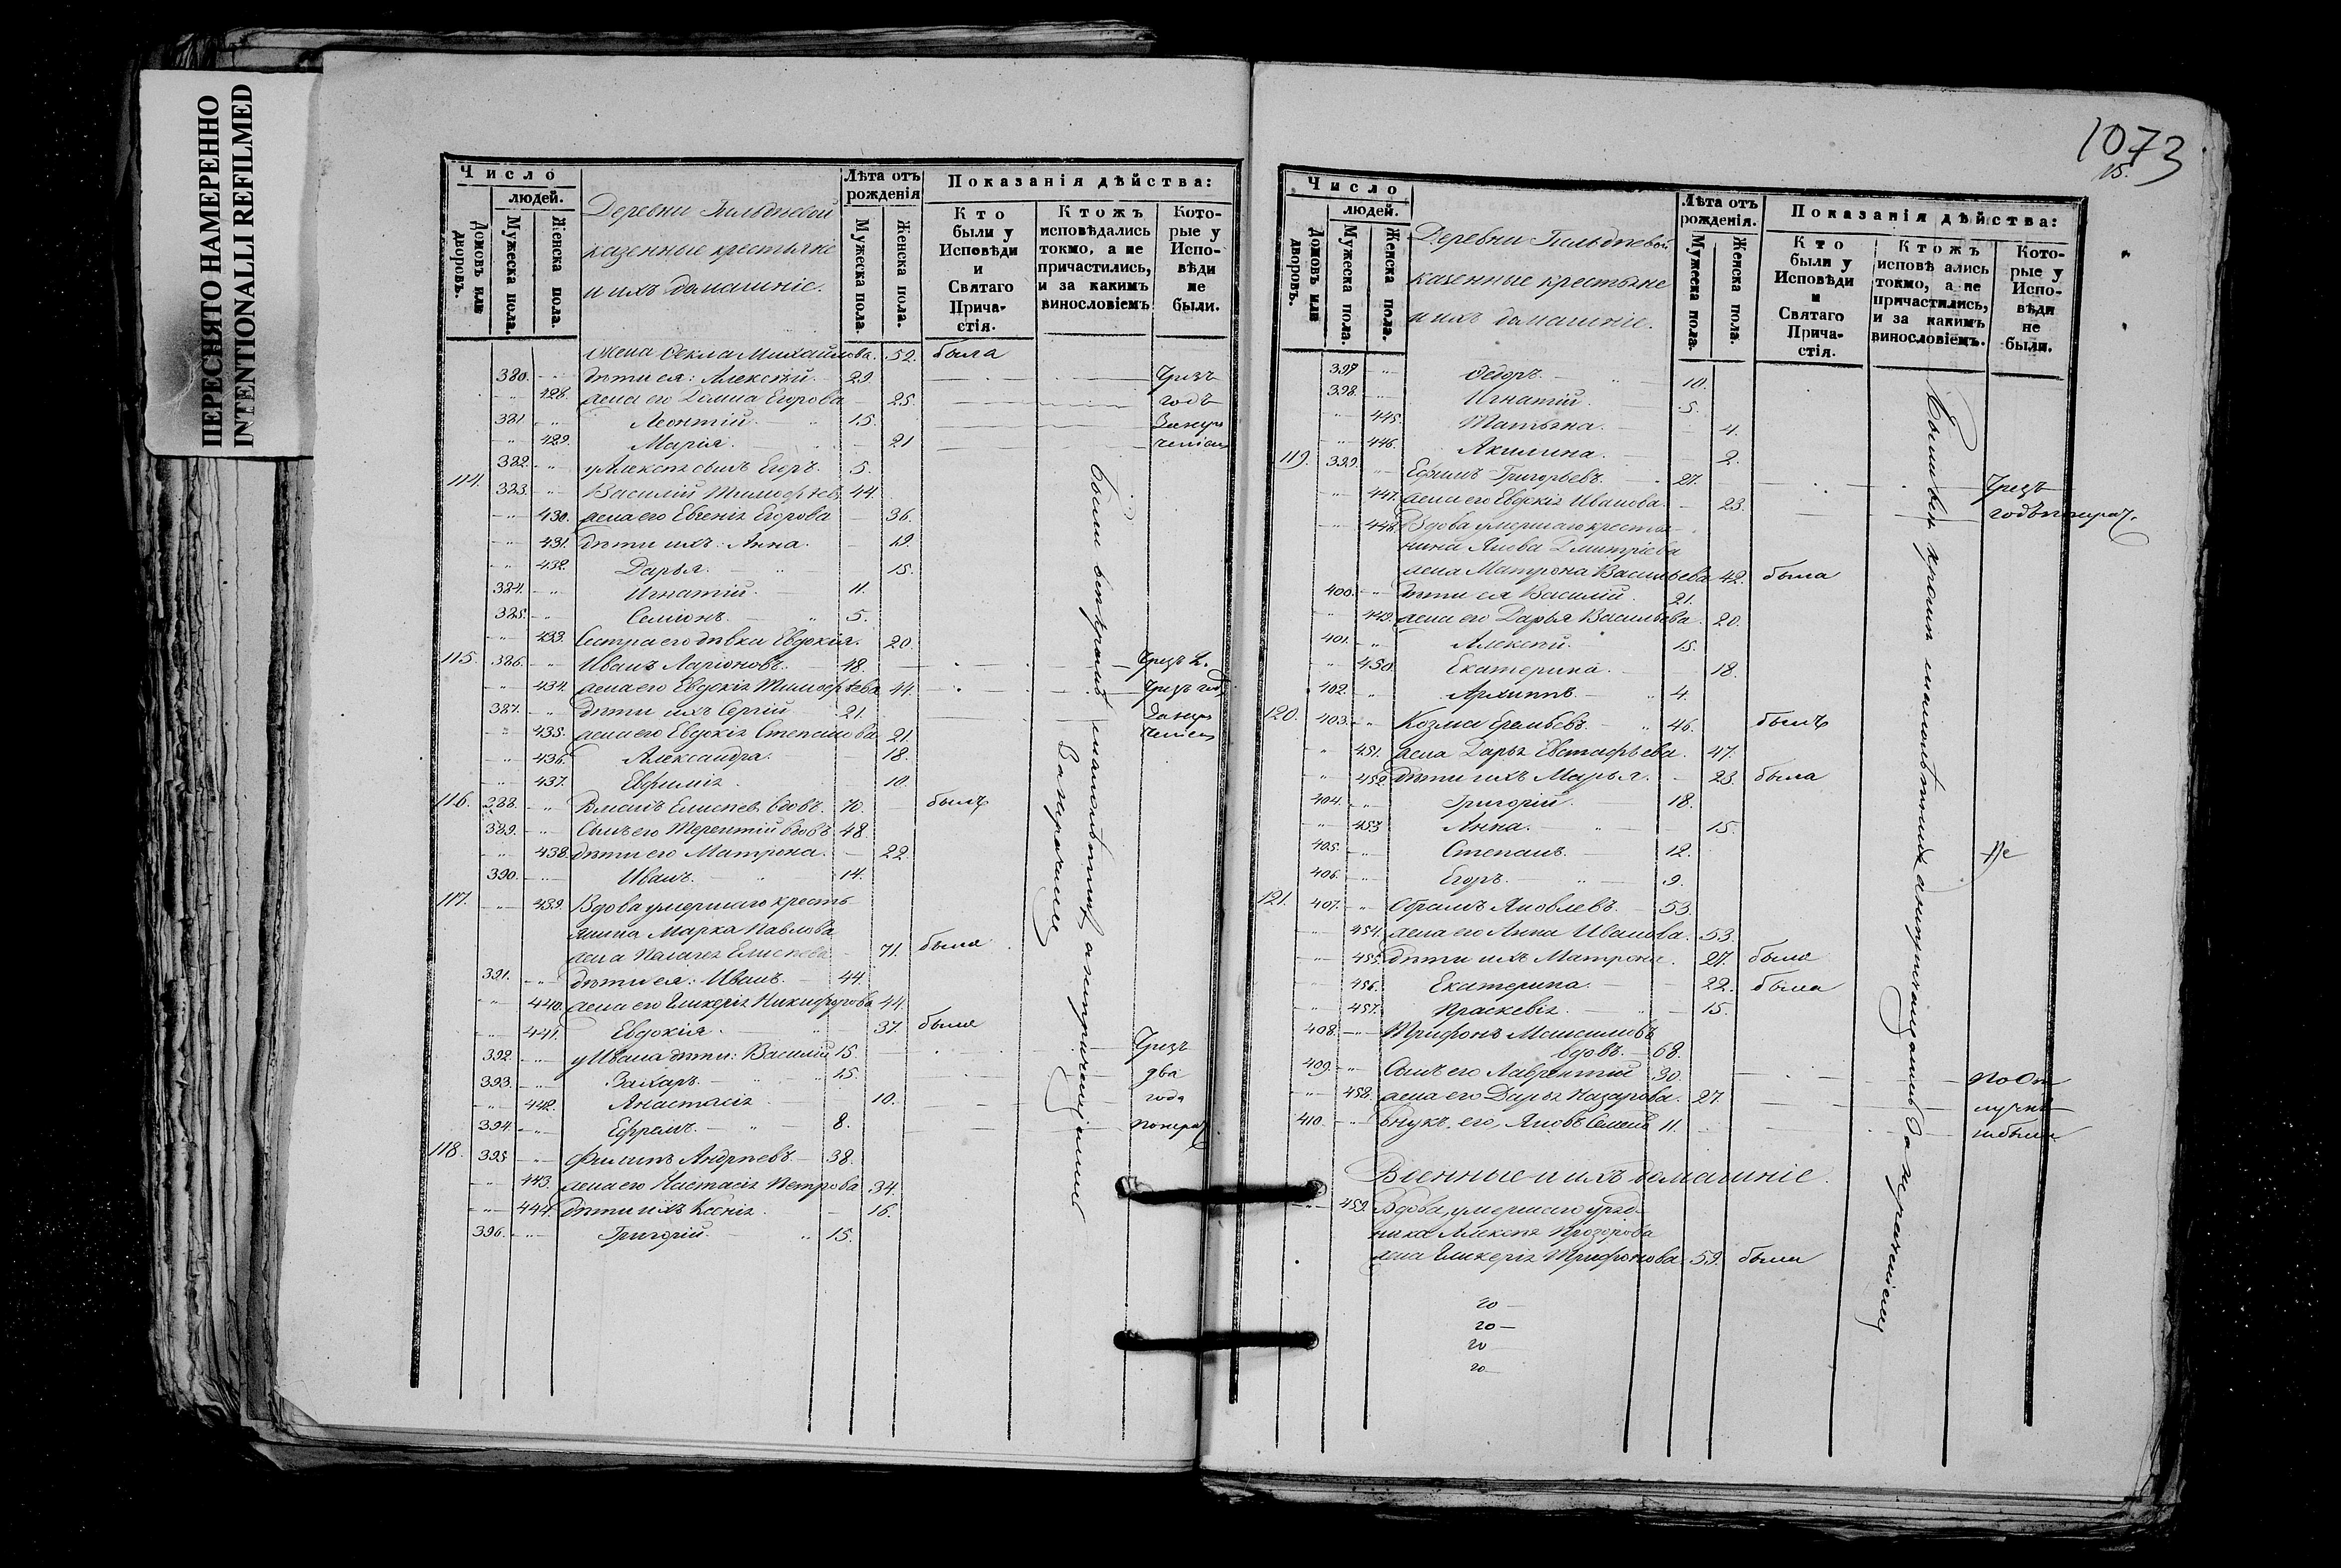 ПЕРЕСНЯТО НАМЕРЕННО
INTENTIONALLI REFILMED
Число
людей.
Домовъ или дворовъ.
Мужеска пола.
Женска пола.
Деревни
казенные крестьяне
и ихъ домашніе.
Лѣта отъ рожденія
Мужеска пола.
Женска пола.
Показанія дѣйства:
Кто были у Исповѣди и Святаго Причастія.
Ктожъ исповѣдались токмо, а не причастились, и за какимъ винословіемъ
Которые у Исповѣди не были.
жена Ѳекла Михайлова. 52. была
380. дѣти ея: Алексѣй. 29. Чрезъ
428. жена его Домна Егорова 25. годъ
381. Леонтій. 15.
429. Марія. 21
382. у Алексѣя сынъ Егоръ. 5.
114. 383. Василій Тимофѣев 44.
430. жена его Евгенія Егорова 36.
431. дѣти ихъ: Анна. 19.
432. Дарья. 15.
384. Игнатій. 11.
385. Семіонъ. 5.
433. Сестра его дѣвка Евдокія. 20.
115. 386. Иванъ Ларіоновъ. 48. Чрезъ 2.
434. жена его Евдокія Тимофѣева 44. Чрезъ год
387. дѣти ихъ Сергій 21.
435. жена его Евдокія Степанова 21.
436. Александра. 18.
437. Евфимія. 10.
116. 388. Елисѣев вдовъ. 70. былъ
389. Сынъ его Терентій вдовъ 48.
438. дѣти его Матрона. 22.
390. Иванъ. 14.
117. 439. Вдова умершаго кресть-
янина Марка Павлова
жена Пелагея Елисѣева 71. была
391. дѣти ея: Иванъ. 44.
440. жена его Гликерія Никифорова 44.
441. Евдокія. 37. была
392. у Ивана дѣти: Василій 15. Чрезъ
393. Захаръ. 15. два
442. Анастасія 10. года
394. Ефремъ. 8.
118. 395 Филипъ Андрѣевъ. 38.
443. жена его Настасія Петрова 34.
444. дѣти ихъ Ксенія. 16.
396. Григорій. 15.
1073
15.
Число
людей.
Домовъ или дворовъ.
Мужеска пола.
Женска пола.
Деревни
казенные крестьяне
и ихъ домашніе.
Лѣта отъ рожденія.
Мужеска пола.
Женска пола.
Показанія дѣйства:
Кто были у Исповѣди и Святаго Причастія.
Ктожъ исповѣ ались токмо, а не причастились, и за какимъ винословіемъ.
Которые у Исповѣди не были.
397 Ѳедоръ. 10.
398. Игнатій. 5.
445. Татьяна. 4.
446. Акилина. 2.
119. 399. Ефимъ Григорьевъ. 27. Чрезъ
447. жена его Евдокія Иванова. 23.
448. Вдова умершаго крестья-
нина Якова Дмитріева
жена Матрона Васильева 42. была
400. дѣти ея Василій. 21.
449. жена его Дарья Васильева. 20.
401. Алексѣй. 15.
450. Екатерина. 18.
402. Архиппъ. 4.
120. 403. Козма 46. былъ
451. жена Дарья Евстафьева. 47.
452. дѣти ихъ Марья. 23. была
404. Григорій. 18.
453 Анна. 15.
405. Степанъ. 12.
406. Егоръ. 9.
121. 407. Яковлевъ. 53.
454. жена его Анна Иванова. 53.
455. дѣти ихъ Матрона. 27. была
456. Екатерина. 22. была
457. Праскевія. 15.
408. Трифонъ Максимовъ
вдовъ. 68.
409. Сынъ его Лаврентій 30. по От
458. жена его Дарья Назарова. 27. лучкѣ
410. внукъ его, Яковъ Семенъ 11. небыли
Военные и ихъ домашніе.
459. Вдова, умершаго уряд-
ника Алексѣя Прозорова
жена Гликерія Трифонова. 59. была
20
20
20
20